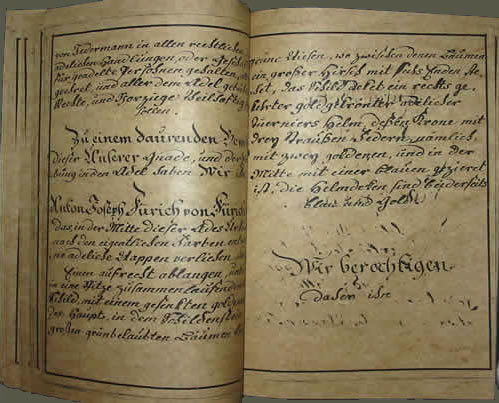 von Jedermann in allen rechtlichen
adelichen Handlungen, oder
für geadelte Personen gehalten,
geehrt, und aller dem Adel
Rechte, und Vorzüge theilhaftig
sollen.
Zu einem daurenden
dieser Unserer Gnade, und der
bung in den Adel haben Wir
Anton Joseph Fürich von
das in der Mitte dieser Adels
nach den eigentlichen Farben
adeliche Wappen verliehen
Einen aufrecht ablangen, unten
in eine Spitze zusammenlaufenden
Schild, mit einem gesenkten goldenen
Haupt, in dem
großen grünbelaubten Bäumen
grüne Wiesen, wo zwischen denen Bäumen
ein großer Hirsch mit Enden
das Schild deket ein rechts ge,
kehrter goldgekrönter adelicher
Turniers Helm, deßen Krone mit
drey Straußen Federn, nämlich
mit zwey goldenen, und in der
Mitte mit einer blauen gezieret
ist. Die Helmdeken sind beiderseits
blau und Gold.
Wir berechtigen
daher ihn